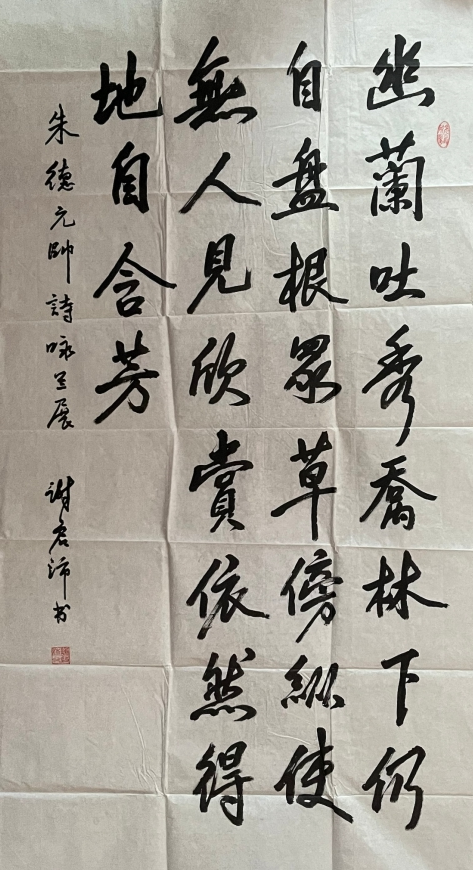 幽蘭吐秀喬林下仍
自盘根眾草傍縱使
無人見欣賞依然得
地自含芳
朱德元帥詩咏兰展 謝宏书